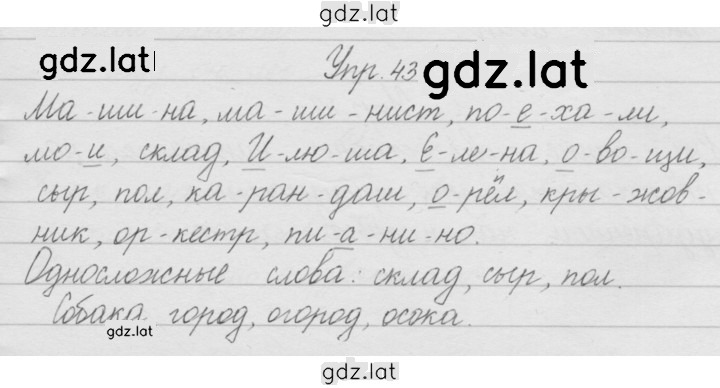 gdz.lat
gdz.lat Упр. 43 gdz.lat
Ма-ши-на, ма-ши-нист, по-е-ха-ли,
мо-и, склад, И-лю-ша, Е-ле-на, о-во-щи,
сыр, пол, ка-ран-даш, о-рёл, кры-жов-
ник, ор-кестр, пи-а-ни-но.
Односложные слова: склад, сыр, пол.
Собака город, огород, осока.
gdz.lat
gdz.lat